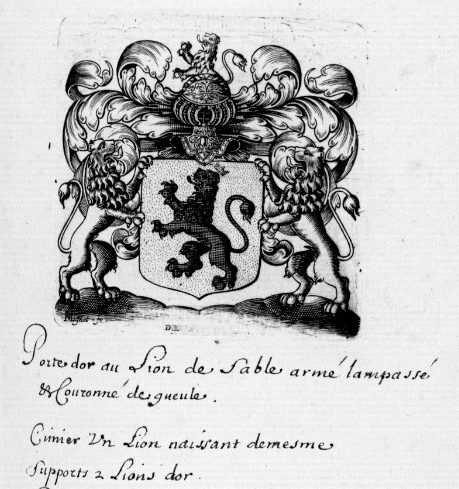 DE
Porte dor au Lion de Sable armé lampassé
& Couronné de gueule.
Cimier Vn Lion naissant demesme
Supports 2 Lions dor.